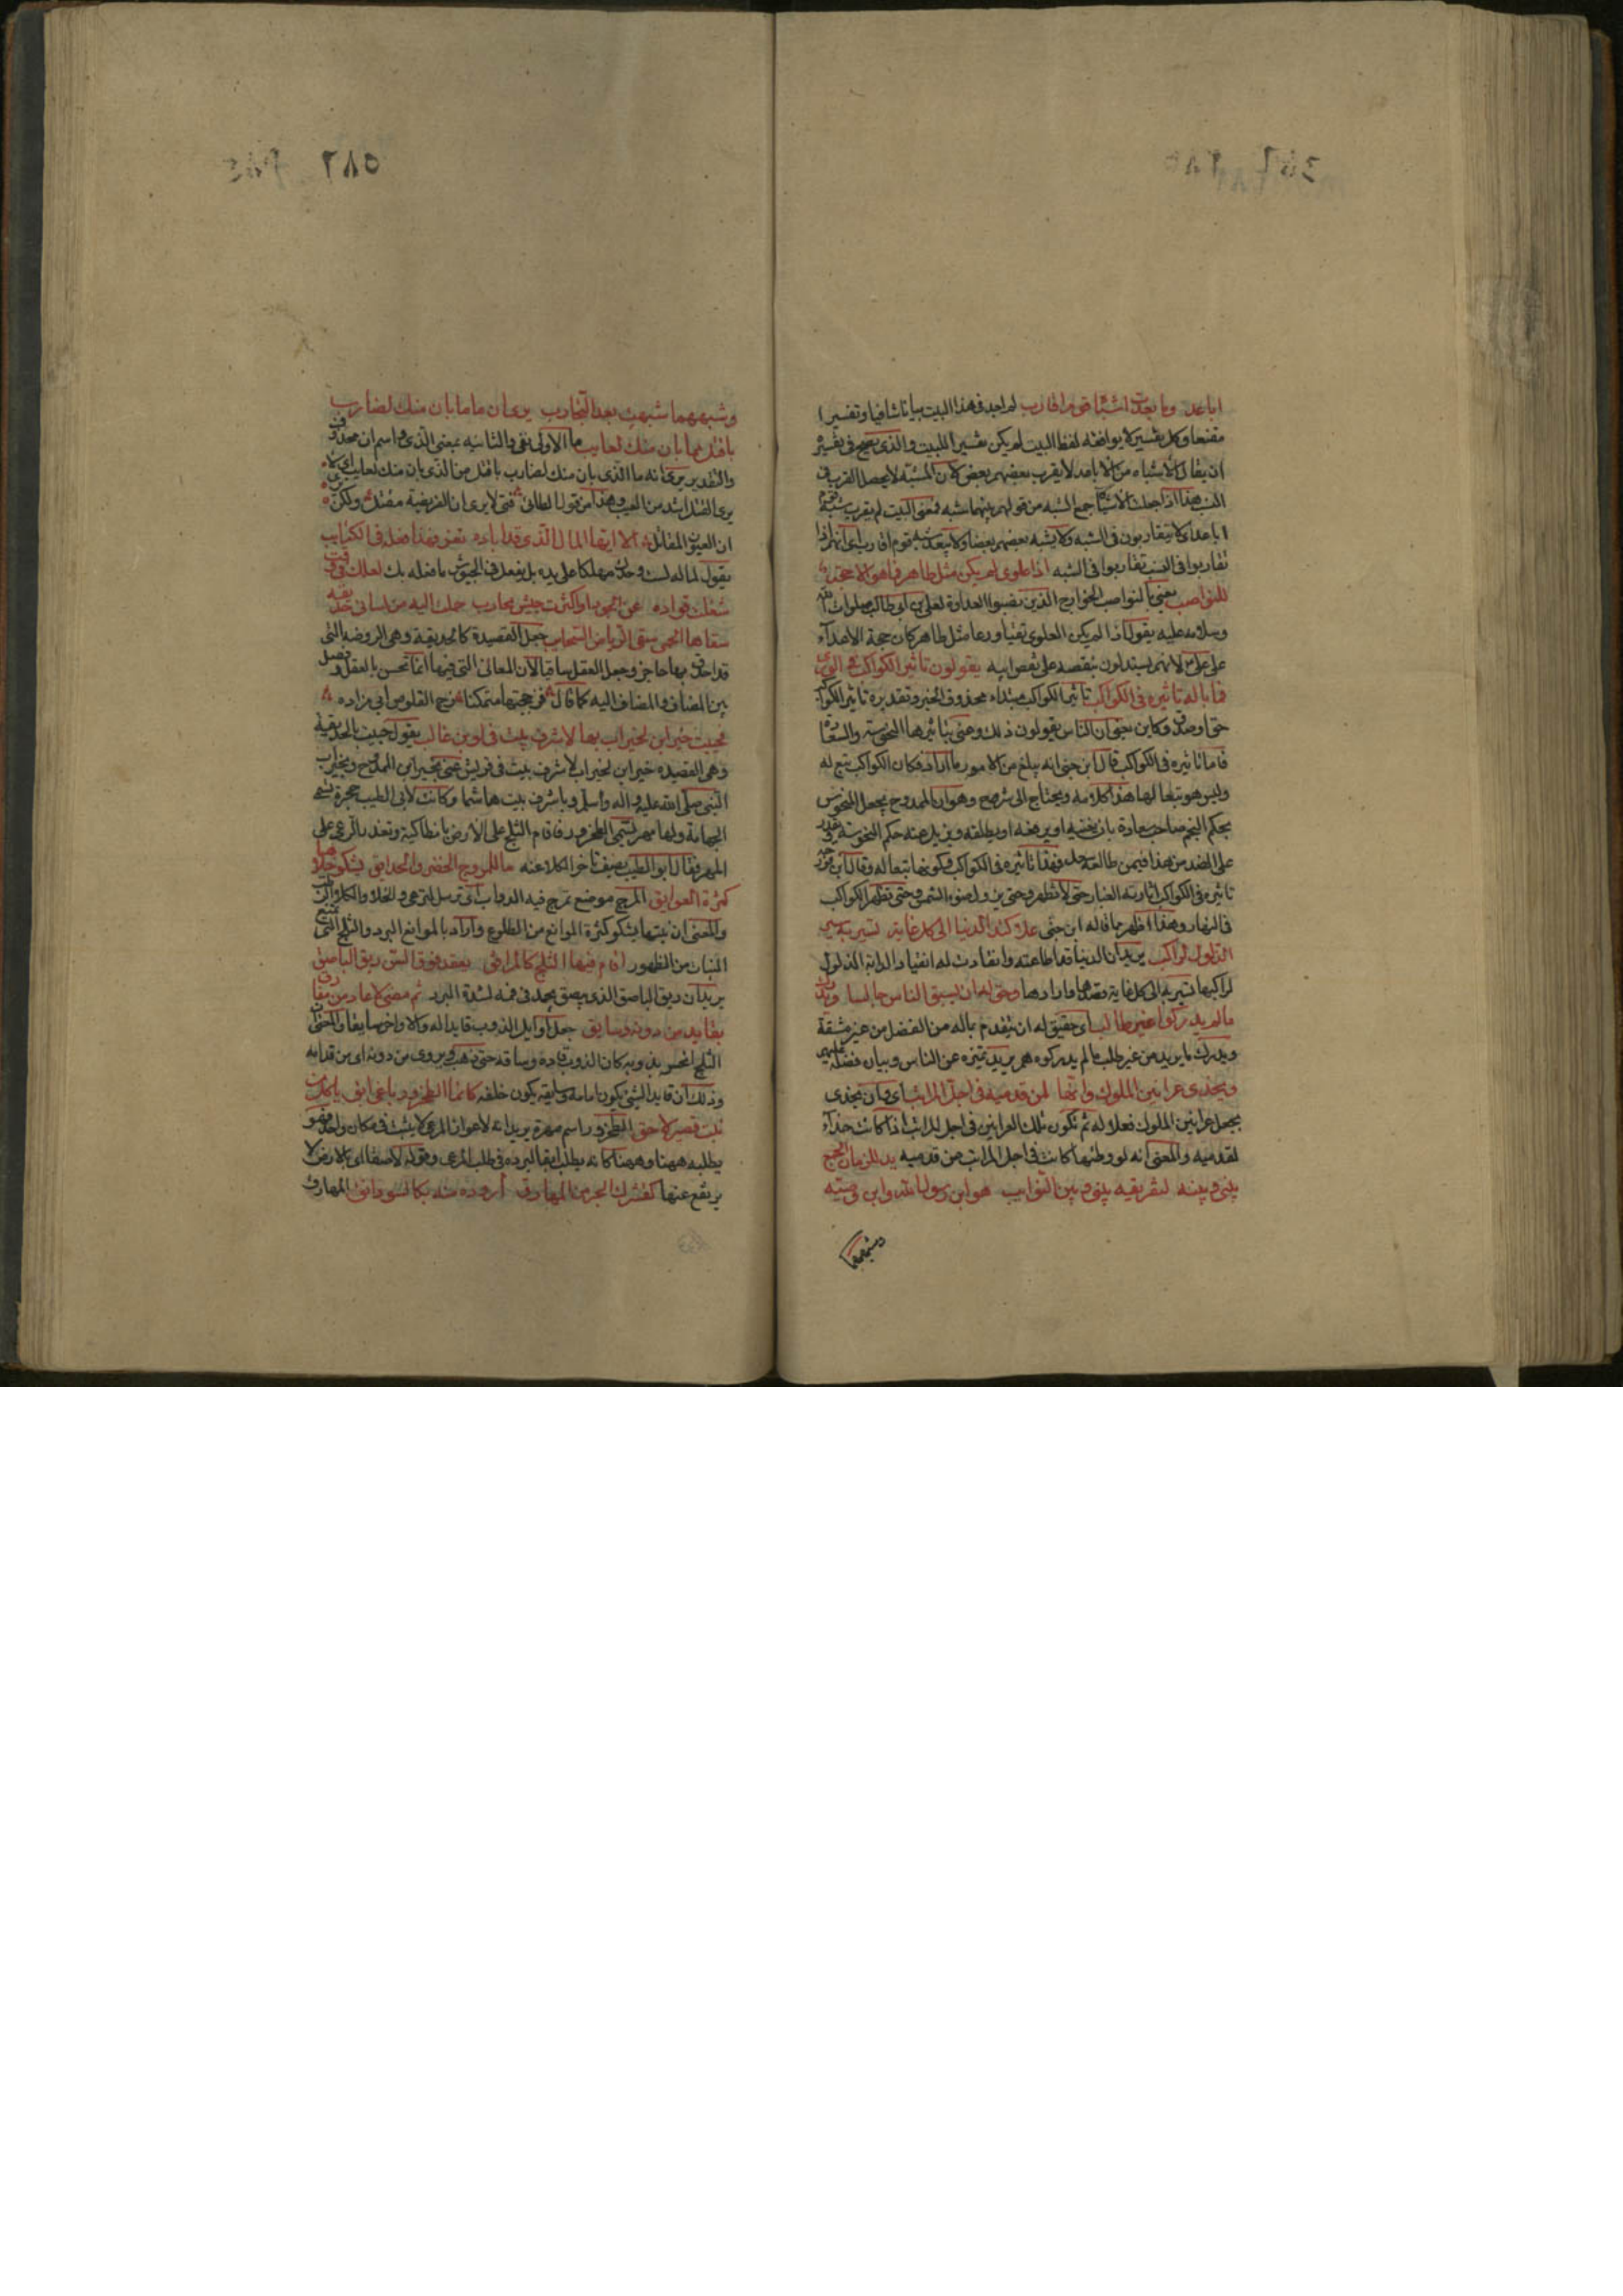 اباعد وما بعدت اشباه قوم اقارب لم اجد فى هذا البيت بيانا شافيا وتفسيرا
مقنعا وكل تفسير لا يوافقه لفظ البيت لم يكن تفسيرا للبيت والذى يصح فى تفسيره
ان يقال الاشباه من الاباعد لا يقرب بعضهم بعض لان الشبه لا يحصل القرب فى
النسب هذا اذا جعلت الاشباه جمع الشبه من قولهم بينهما شبه فمعنى البيت لم يقرب شبه قوم
اباعد اى لا يتقاربون فى الشبه ولا يشبه بعضهم بعضا ولا يبعد شبه قوم اقارب اى انهم اذا
تقاربوا فى النسب تقاربوا فى الشبه اذا علوى لم يكن مثل طاهر فما هو الا حجة
للنواصب يعنى بالنواصب الخوارج الذين نصبوا العداوة لعلى بن ابى طالب صلوات الله
وسلامه عليه يقول اذا لم يكن العلوى تقيا ورعا مثل طاهر كان حجة الاعداء
على على لانهم يستدلون بنقصه على نقص ابيه يقولون تاثير الكواكب فى الورى
فما باله تاثيره فى الكواكب تاثير الكواكب مبتداء محذوف الخبر وتقديره تاثير الكواكب
حق او صدق وكاين يعنى ان الناس يقولون ذلك وعنى بتاثيرها النحوسة والسعادة
فاما تاثيره فى الكواكب قال ابن جنى انه يبلغ من الامور ما اراد فكان الكواكب تبع له
وليس هو تبعا لها هذا كلامه ويحتاج الى شرح وهو ان الممدوح يجعل المنحوس
بحكم النجم صاحب سعادة بان يغنيه او يرفعه او يطلقه ويزيل عنه حكم النحوسة ويقدر
على الضد من هذا فيمن طالعه سعد فهذا تاثيره فى الكواكب وكونها تبعا له وقال ابن فورجه
تاثيره فى الكواكب اثارته الغبار حتى لا تظهر وحتى يزول ضوء الشمس وحتى تظهر الكواكب
فى النهار وهذا اظهر مما قاله ابن جنى علا كتد الدنيا الى كل غاية تسير به سير
الذلول لراكب يريد ان الدنيا قد اطاعته وانقادت له انقياد الدابة الذلول
لراكبها تسير به الى كل غاية قصدها وارادها وحق له ان يسبق الناس جالسا ويدرك
ما لم يدركوا غير طالب اى حقيق له ان يتقدم بماله من الفضل من غير مشقة
ويدرك ما يريد من غير طلب ما لم يدركوه هم يريد تميزه عن الناس وبيان فضله عليهم
ويحذى عرانين الملوك وانها لمن قدميه فى اجل المراتب اى وبان يحذى
يجعل عرانين الملوك نعلا له ثم تكون تلك العرانين فى اجل المراتب اذا كانت حذاء
لقدميه والمعنى انه لو وطئها كانت فى اجل المراتب من قدميه يد للزمان الجمع
بينى وبينه لتفريقه بينى وبين النوايب هو ابن رسول الله وابن وصيه
وشبههما
وشبههما شبهت بعد التجارب يرى ان ما ما بان منك لضارب
باقتل مما بان منك لعايب ما الاولى نفى والثانيه بمعنى الذى واسم ان محذوف
والتقدير يرى انه ما الذى بان منك لضارب باقتل من الذى بان منك لعايب اى لا
يرى القتل اشد من العيب وهذا من قول الطائى فتى لا يرى ان الفريصة مقتل ولكن يرى
ان العيوب المقاتل الا ايها المال الذى قد اباده تعز فهذا فعله فى الكتايب
يقول لماله لست وحدك مهلكا على يده بل يفعل فى الجيوش ما فعله بك لعلك فى وقت
شغلت فؤاده عن الجود او اكثرت جيش محارب حملت اليه من لسانى حديقه
سقاها الحجى سقى الرياض السحاب جعل القصيدة كالحديقة وهى الروضه التى
قد احدق بها حاجز وجعل العقل ساقيا لان المعانى التى فيها انما تحسن بالعقل وفصل
بين المضاف والمضاف اليه كما قال فزججتها متمكنا زج القلوص ابى مزاده
فحييت خير ابن لخير اب بها لاشرف بيت فى لوى بن غالب يقول حييت بالحديقه
وهى القصيده خير ابن لخير اب لاشرف بيت فى قريش عنى بخير ابن الممدوح وبخير اب
النبى صلى الله عليه واله وسلم وباشرف بيت هاشما وكانت لابى الطيب حجرة تسمى
الجهامة ولها مهر يسمى الطخرور فاقام الثلج على الارض بانطاكية وتعذر الرعى على
المهر فقال ابو الطيب يصف تاخر الكلا عنه ما للمروج الخضر والحدايق يشكو خلاها
كثرة العوايق المرج موضع تمرج فيه الدواب اى ترسل لترعى والخلا والكلا الرطب
والمعنى ان نبتها يشكو كثرة الموانع من الطلوع واراد بالموانع البرد والثلج التى تمنع
النبات من الظهور اقام فيها الثلج كالمرافق يعقد فوق السن ريق الباصق
يريد ان ريق الباصق الذى يبصق يجمد فى فمه لشدة البرد ثم مضى لا عاد من مفارق
بقايد من ذوبه وسايق جعل اوايل الذوب قايدا له والاواخر سايقا والمعنى ان
الثلج انحسر بذوبه كان الذوب قاده وساقه حتى ذهب ويروى من دونه اى من قدامه
وذلك ان قايد الشئ يكون امامه وسايقه يكون خلفه كانما الطخرور باغى ابق ياكل من
نبت قصير لاحق الطخرور اسم مهرة يريد انه لاعواز المرعى لا يثبت فى مكان واحد فهو
يطلبه ههنا وههنا كانه يطلب ابقا لتردده فى طلب المرعى وقوله لاصقا اى بالارض لا
يرتفع عنها كقشرك الحبر من المهارق اروده منه بكالسوذانق المهارق